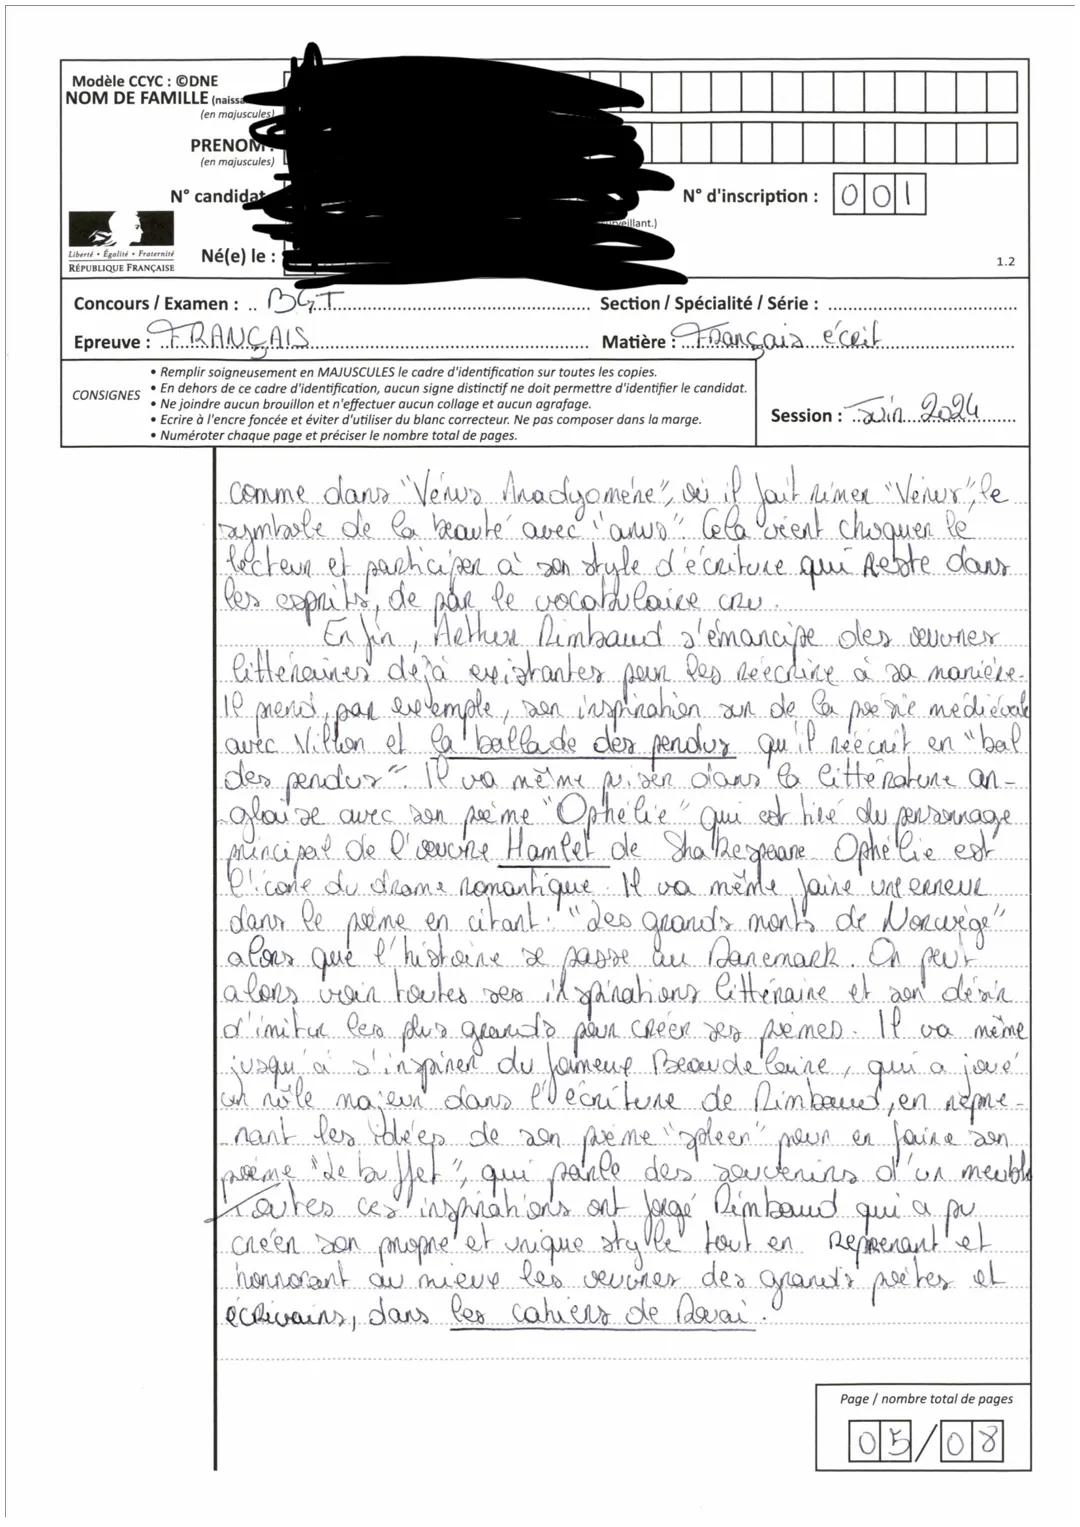 Modèle CCYC : ©DNE
NOM DE FAMILLE (naissa
(en majuscules)
PRENOM :
(en majuscules)
N° candidat
N° d'inscription : 001
rveillant.)
Né(e) le :
Liberté • Égalité • Fraternité
RÉPUBLIQUE FRANÇAISE
1.2
Concours / Examen : BGT
Section / Spécialité / Série :
Epreuve : FRANÇAIS
Matière : Français écrit
CONSIGNES
• Remplir soigneusement en MAJUSCULES le cadre d'identification sur toutes les copies.
• En dehors de ce cadre d'identification, aucun signe distinctif ne doit permettre d'identifier le candidat.
• Ne joindre aucun brouillon et n'effectuer aucun collage et aucun agrafage.
• Ecrire à l'encre foncée et éviter d'utiliser du blanc correcteur. Ne pas composer dans la marge.
• Numéroter chaque page et préciser le nombre total de pages.
Session : Juin 2024
comme dans "Vénus Anadyomène", où il fait rimer "Vénus", le
symbole de la beauté avec "anus". Cela vient choquer le
lecteur et participer à son style d'écriture qui reste dans
les esprits, de par le vocabulaire cru.
Enfin, Arthur Rimbaud s'émancipe des œuvres
littéraires déjà existantes pour les réécrire à sa manière.
Il prend, par exemple, son inspiration sur de la poésie médiévale
avec Villon et la ballade des pendus qu'il réécrit en "bal
des pendus". Il va même puiser dans la littérature an-
glaise avec son poème "Ophélie" qui est tiré du personnage
principal de l'œuvre Hamlet de Shakespeare. Ophélie est
l'icone du drame romantique. Il va même faire une erreur
dans le poème en citant : "Les grands monts de Norwège"
alors que l'histoire se passe au Danemark. On peut
alors voir toutes ses inspirations littéraire et son désir
d'imiter les plus grands pour créer ses poèmes. Il va même
jusqu'à s'inspirer du fameux Beaudelaire, qui a joué
un rôle majeur dans l'écriture de Rimbaud, en repre-
nant les idées de son poème "spleen" pour en faire son
poème "Le buffet", qui parle des souvenirs d'un meuble
Toutes ces inspirations ont forgé Rimbaud qui a pu
créer son propre et unique style tout en reprenant et
honnorant au mieux les œuvres des grands poètes et
écrivains, dans les cahiers de Douai.
Page / nombre total de pages
05/08